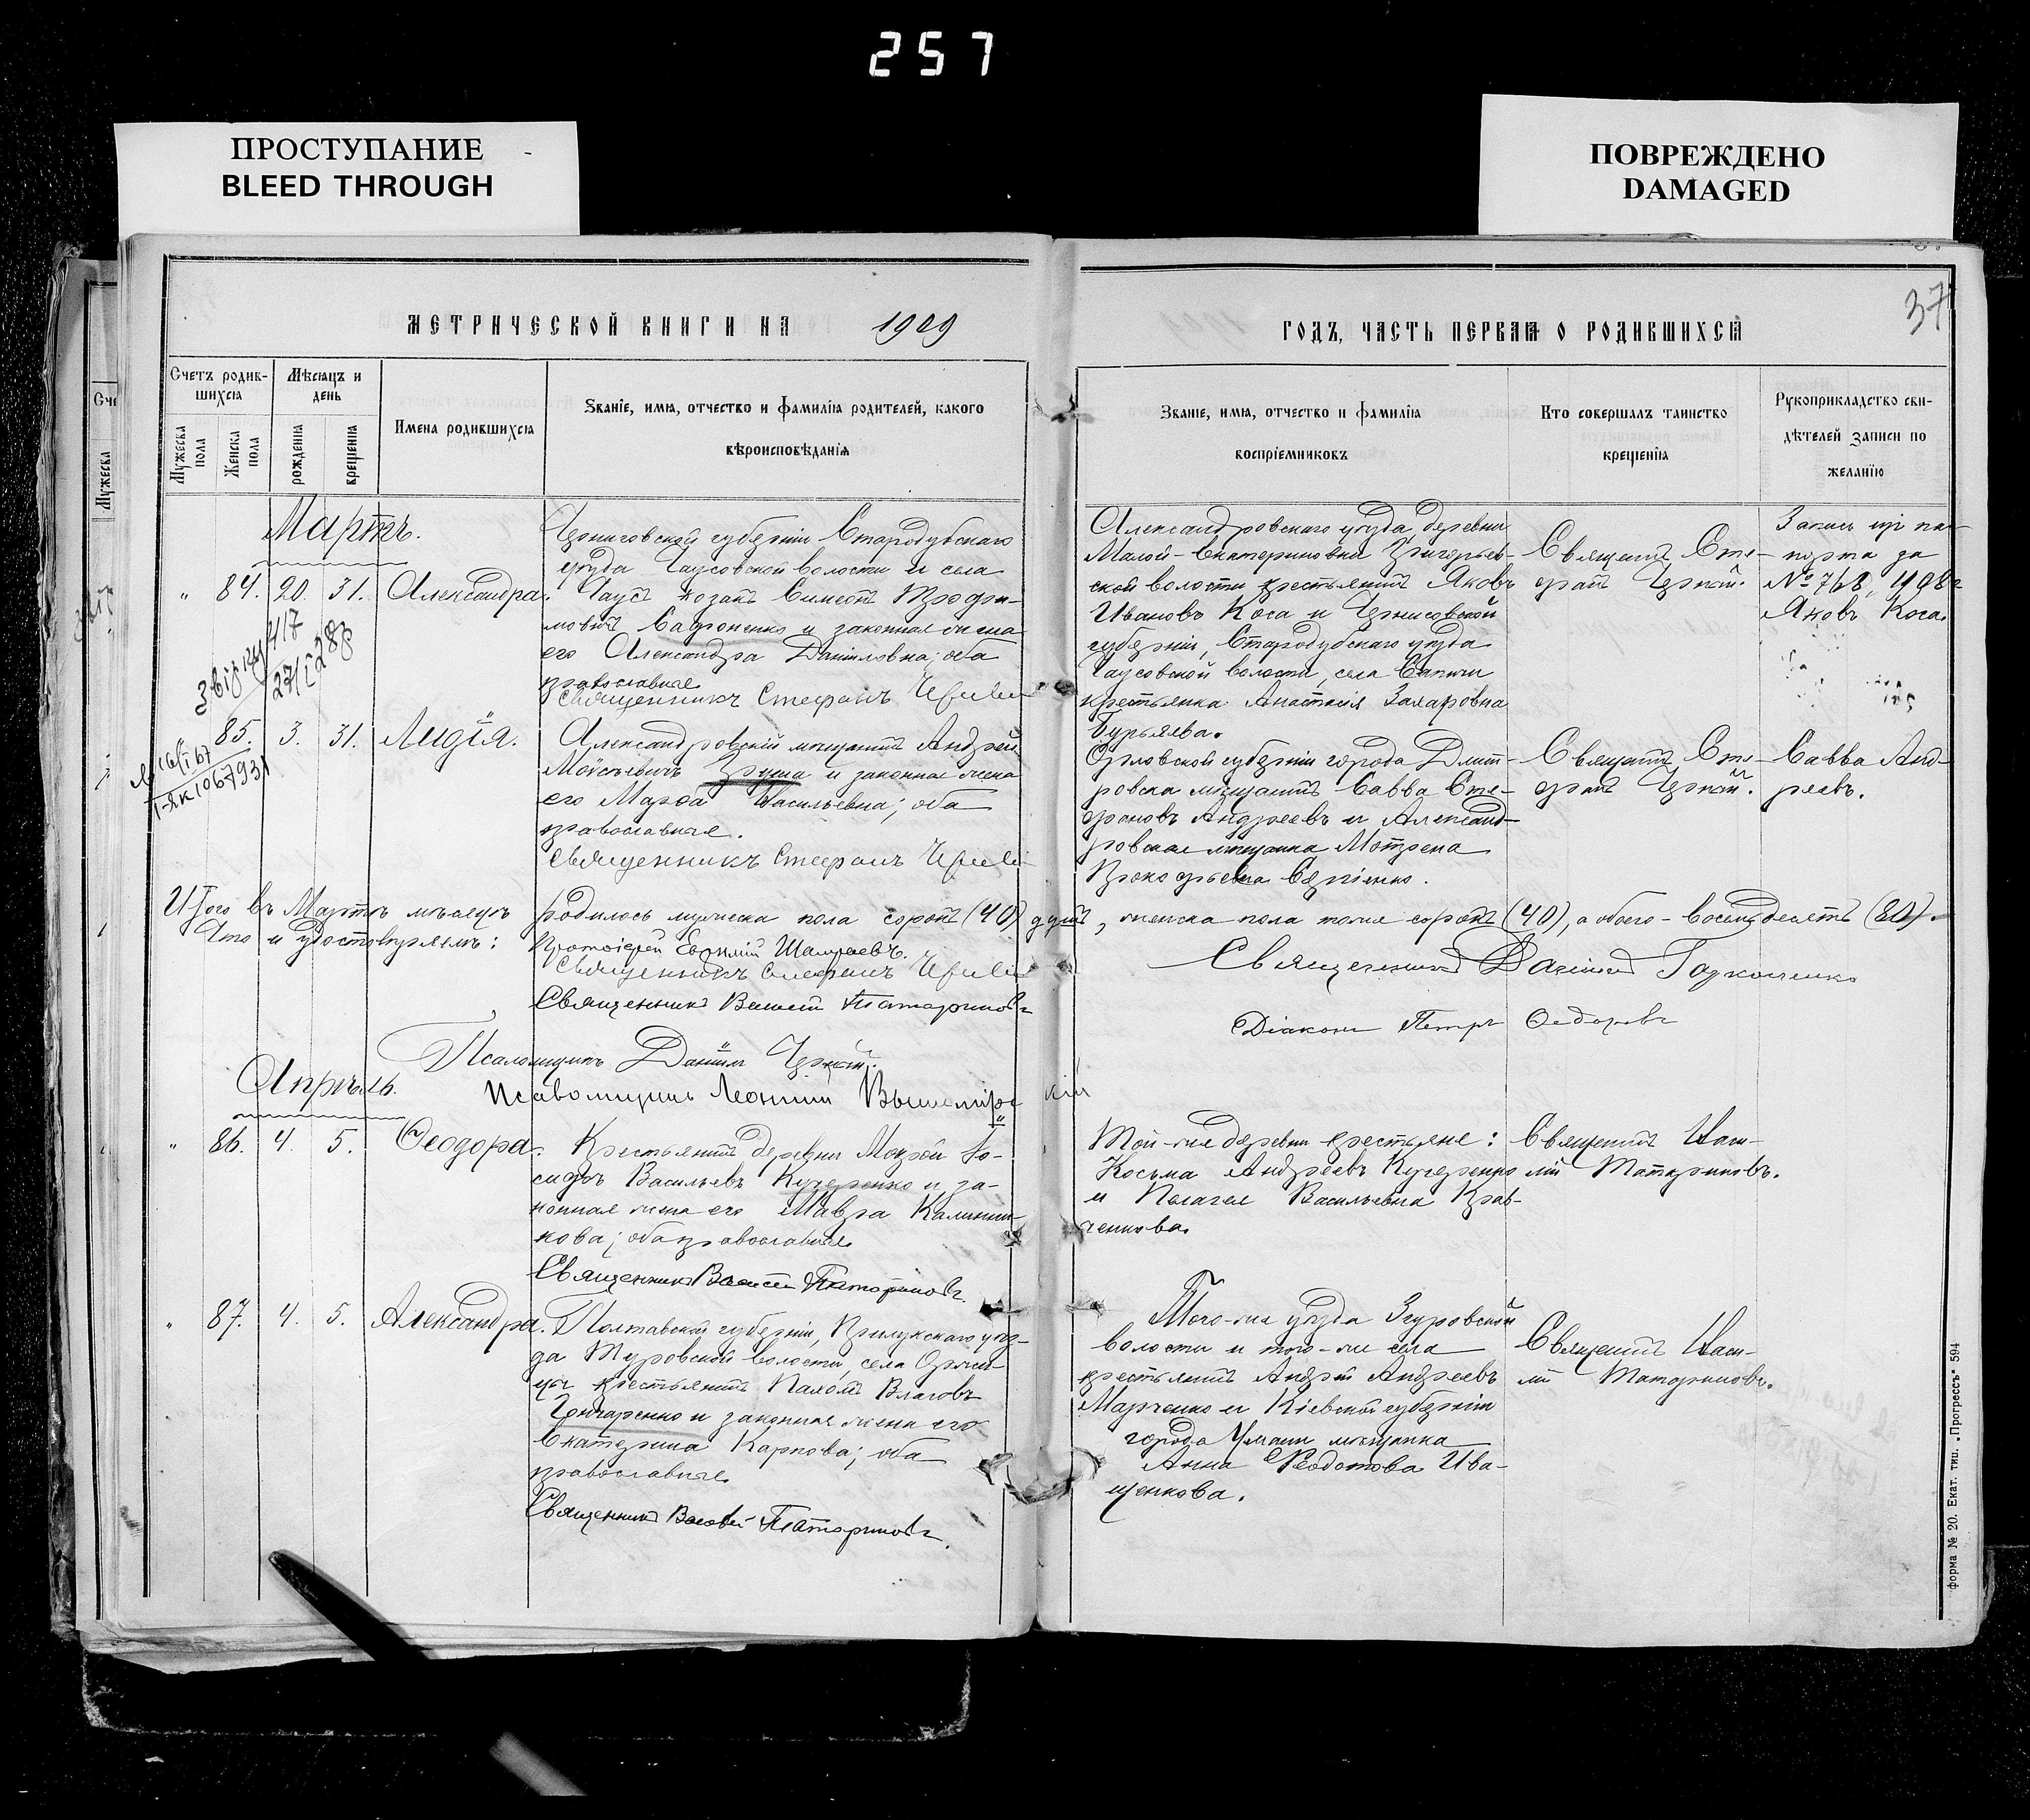 257
ПРОСТУПАНИЕ
BLEED THROUGH
ПОВРЕЖДЕНО
DAMAGED
37
МЕТРИЧЕСКОЙ КНИГИ НА 1909
ГОДЪ, ЧАСТЬ ПЕРВАЯ О РОДИВШИХСЯ
Счетъ родив-
шихся
Мужеска пола
Женска пола
Мѣсяцъ и
день
рожденія
крещенія
Имена родившихся
Званіе, имя, отчество и фамилія родителей, какого
вѣроисповѣданія
Званіе, имя, отчество и фамилія
воспріемниковъ
Кто совершалъ таинство
крещенія
Рукоприкладство сви-
дѣтелей записи по
желанію
Мартъ.
„ 84. 20. 31. Александра.
Черниговской губерніи Стародубскаго
уѣзда Чаусовской волости и села
козакъ
и законная жена
его Александра Даниловна; оба
православные
Священникъ Стефанъ
Александровскаго уѣзда, деревни
Малой-Екатериновки Григорьев-
ской волости крестьянинъ Яковъ
Ивановъ Коса и
губерніи, Стародубскаго уѣзда
Чаусовской волости, села
крестьянка Анастасія Захаровна
Священникъ Сте-
фанъ
№ 768, 1908 г
Яковъ Коса.
85. 3. 31. Лидія.
Александровскій мѣщанинъ Андрей
Моѵсеевичъ и законная жена
его Марѳа Васильевна; оба
православные.
Священникъ Стефанъ
Орловской губерніи города Дмит-
ровска мѣщанинъ Савва Сте-
фановъ Андреевъ и Александ-
ровская мѣщанка Мотрена
Прокофьевна Сергіенко.
Священникъ Сте-
фанъ
Савва Анд-
реевъ.
Итого въ Мартѣ мѣсяцѣ родилось мужеска пола сорокъ (40) душъ, женска пола тоже сорокъ (40), а обоего - восемьдесятъ (80).
Что и удостовѣряемъ: Протоіерей Евѳимій
Священникъ Стефанъ
Священникъ Василій Таториновъ
Священникъ
Діаконъ Петръ Ѳедоровъ
Псаломщикъ Даніилъ
Псаломщикъ Леонтій
Апрѣль.
„ 86. 4. 5. Ѳеодора.
Крестьянинъ деревни Мокрой Іо-
сифъ Васильевъ Кучеренко и за-
конная жена его Мавра Калини-
кова; оба православные
Священникъ Василій Таториновъ.
Той-же деревни крестьяне:
Косьма Андреевъ Кучеренко
и Пелагея Васильевна Крав-
ченкова.
Священникъ Васи-
лій Таториновъ.
„ 87. 4. 5. Александра.
Полтавской губерніи, Прилукскаго уѣз-
да волости, села
крестьянинъ Власовъ
Гончаренко и законная жена его
Екатерина Карпова; оба
православные
Священникъ Василій Таториновъ.
Того-же уѣзда Згуровской
волости и того-же села
крестьянинъ Андрей Андреевъ
Марченко и Кіевской губерніи
города Умани мѣщанка
Анна Ѳеодотова Ива-
щенкова.
Священникъ Васи-
лій Таториновъ.
Форма № 20. Екат. тип. „Прогрессъ" 594